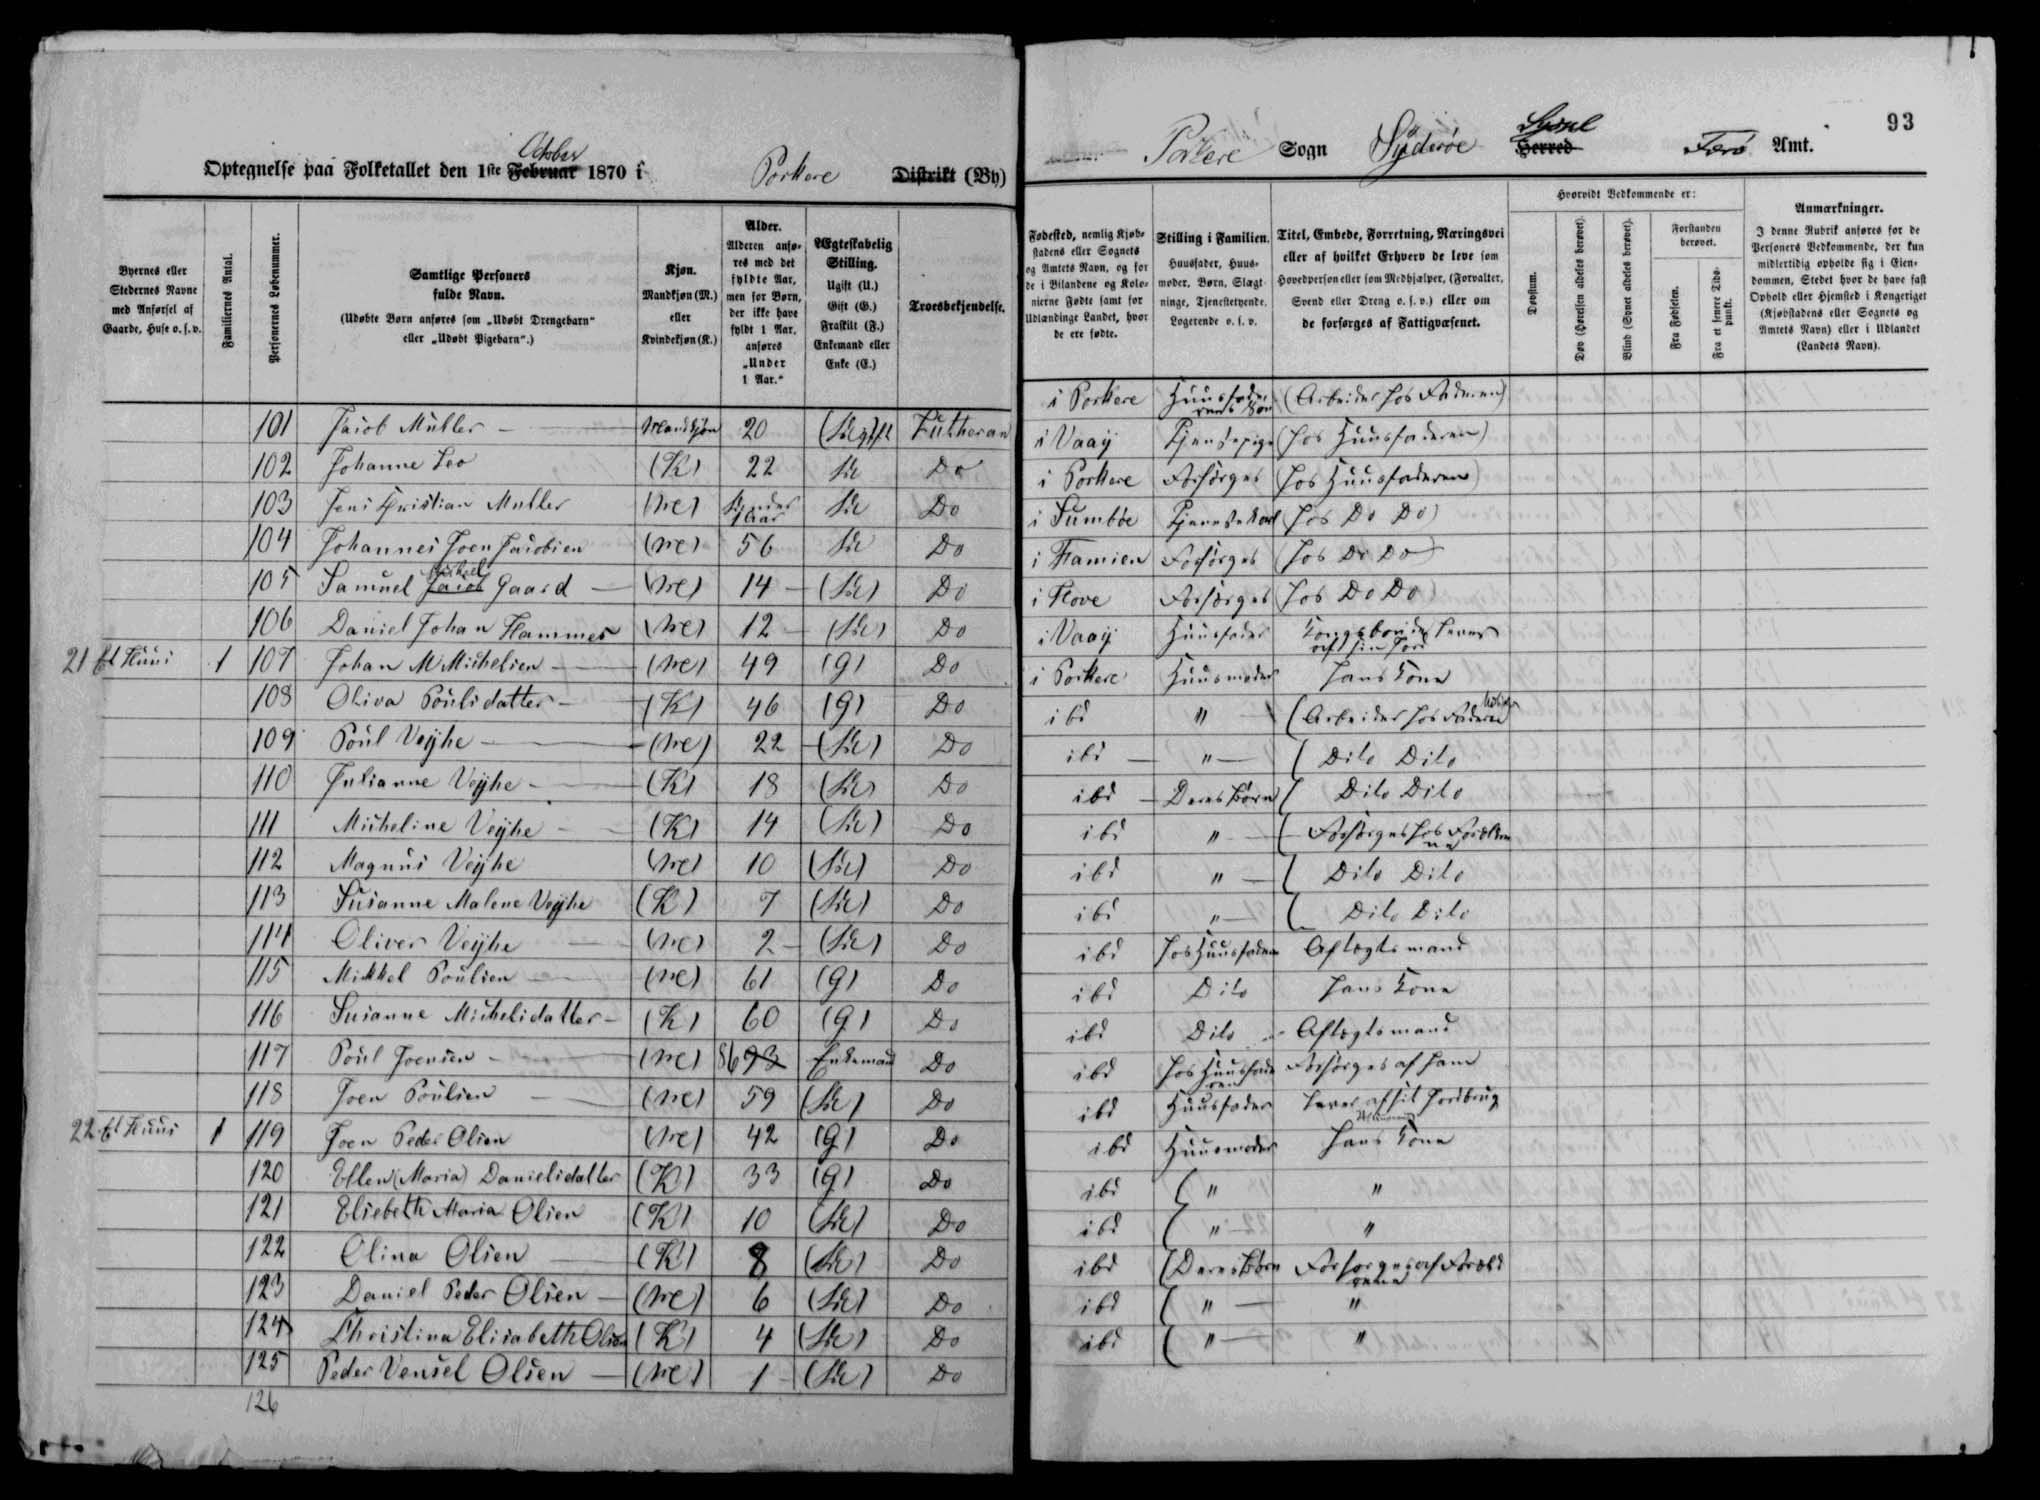 October
Optegnelse paa Folketallet den 1ste Februar 1870 i Porkere Distrikt (By)
Byernes eller Stedernes Navne med Anførsel af Gaarde, Huse o. s. v.
Familiernes Antal.
Personernes Løbenummer.
Samtlige Personers fulde Navn.
(Udøbte Børn anføres som „Udøbt Drengebarn“ eller „Udøbt Pigebarn“.)
Kjøn.
Mandkjøn (M.) eller Kvindekjøn (K.)
Alder.
Alderen anføres med det fyldte Aar, men for Børn, der ikke have fyldt 1 Aar, anføres „Under 1 Aar.“
Ægteskabelig Stilling.
Ugift (U.)
Gift (G.)
Fraskilt (F.)
Enkemand eller Enke (E.)
Troesbekjendelse.
101 Jacob Müller Mandkjøn 20 (Ugift Lutheran
102 Johanne Leo (K) 22 Do
103 Jens Christian Müller (M) Under 1 Aar Do
104 Johannes Joen Jacobsen (M) 56 Do
105 Samuel Jacob Gaard (M) 14 (U) Do
106 Daniel Johan Hammer (M) 12 (U) Do
21 Et Huus 1 107 Johan M Michelsen (M) 49 (G) Do
108 Oliva Poulsdatter (K) 46 (G) Do
109 Poul Vejhe (M) 22 (U) Do
110 Julianne Vejhe (K) 18 (U) Do
111 Micheline Vejhe (K) 14 (U) Do
112 Magnus Vejhe (M) 10 (U) Do
113 Susanne Malene Vejhe (K) 7 (U) Do
114 Oliver Vejhe (M) 2 (U) Do
115 Mikkel Poulsen (M) 61 (G) Do
116 Susanne Michelsdatter (K) 60 (G) Do
117 Poul Joensen (M) 86 93 Enkemand Do
118 Joen Poulsen (M) 59 (U) Do
22 Et Huus 1 119 Joen Peder Olsen (M) 42 (G) Do
120 Ellen (Maria) Danielsdatter (K) 33 (G) Do
121 Elsebeth Maria Olsen (K) 10 (U) Do
122 Olina Olsen (K) 8 (U) Do
123 Daniel Peder Olsen (M) 6 (U) Do
124 Christina Elisabeth Olsen (K) 4 (U) Do
125 Peder Vensel Olsen (M) 1 (U) Do
126
93
Porkere Sogn Syderøe Syssel
Herred Færø Amt.
Fødested, nemlig Kjøbstadens eller Sognets og Amtets Navn, og for de i Bilandene og Kolonierne Fødte samt for Udlændinge Landet, hvor de ere fødte.
Stilling i Familien.
Huusfader, Huusmoder, Børn, Slægtninge, Tjenestetyende, Logerende o. s. v.
Titel, Embede, Forretning, Næringsvei eller af hvilket Erhverv de leve som Hovedperson eller som Medhjælper, (Forvalter, Svend eller Dreng o. s. v.) eller om de forsørges af Fattigvæsenet.
Hvorvidt Vedkommende er:
Døvstum.
Døv (Hørelsen aldeles berøvet).
Blind (Synet aldeles berøvet).
Forstanden berøvet.
Fra Fødselen.
Fra et senere Tidspunkt.
Anmærkninger.
I denne Rubrik anføres for de Personers Vedkommende, der kun midlertidig opholde sig i Eiendommen, Stedet hvor de have fast Ophold eller Hjemsted i Kongeriget (Kjøbstadens eller Sognets og Amtets Navn) eller i Udlandet (Landets Navn).
i Porkere Huusfaderens Søn (Arbeider hos Faderen)
i Vaaij Tjenstepige (hos Huusfaderen)
i Porkere Forsørges (hos Huusfaderen)
i Sumbøe Tjenstekarl (hos Do Do)
i Famien Forsørges (hos Do Do)
i Hove Forsørges (hos Do Do
i Vaaij Huusfader Kongsbonde lever af sin Jord
i Porkere Huusmoder hans Kone
ibd " (Arbeider hos Faderen
ibd " (Dito Dito
ibd Deres Børn (Dito Dito
ibd " (Forsørges hos Forældrene
ibd " (Dito Dito
ibd " (Dito Dito
ibd hos Huusfaderen Aftægtsmand
ibd Dito hans Kone
ibd Dito Aftægtsmand
ibd hos Huusfaderen Forsørges af ham
ibd Huusfader Lever af sit Jordbrug
ibd Huusmoder hans Kone
ibd ( " "
ibd ( " "
ibd (Deres Børn Forsørges af Forældrene
ibd ( " "
ibd ( " "